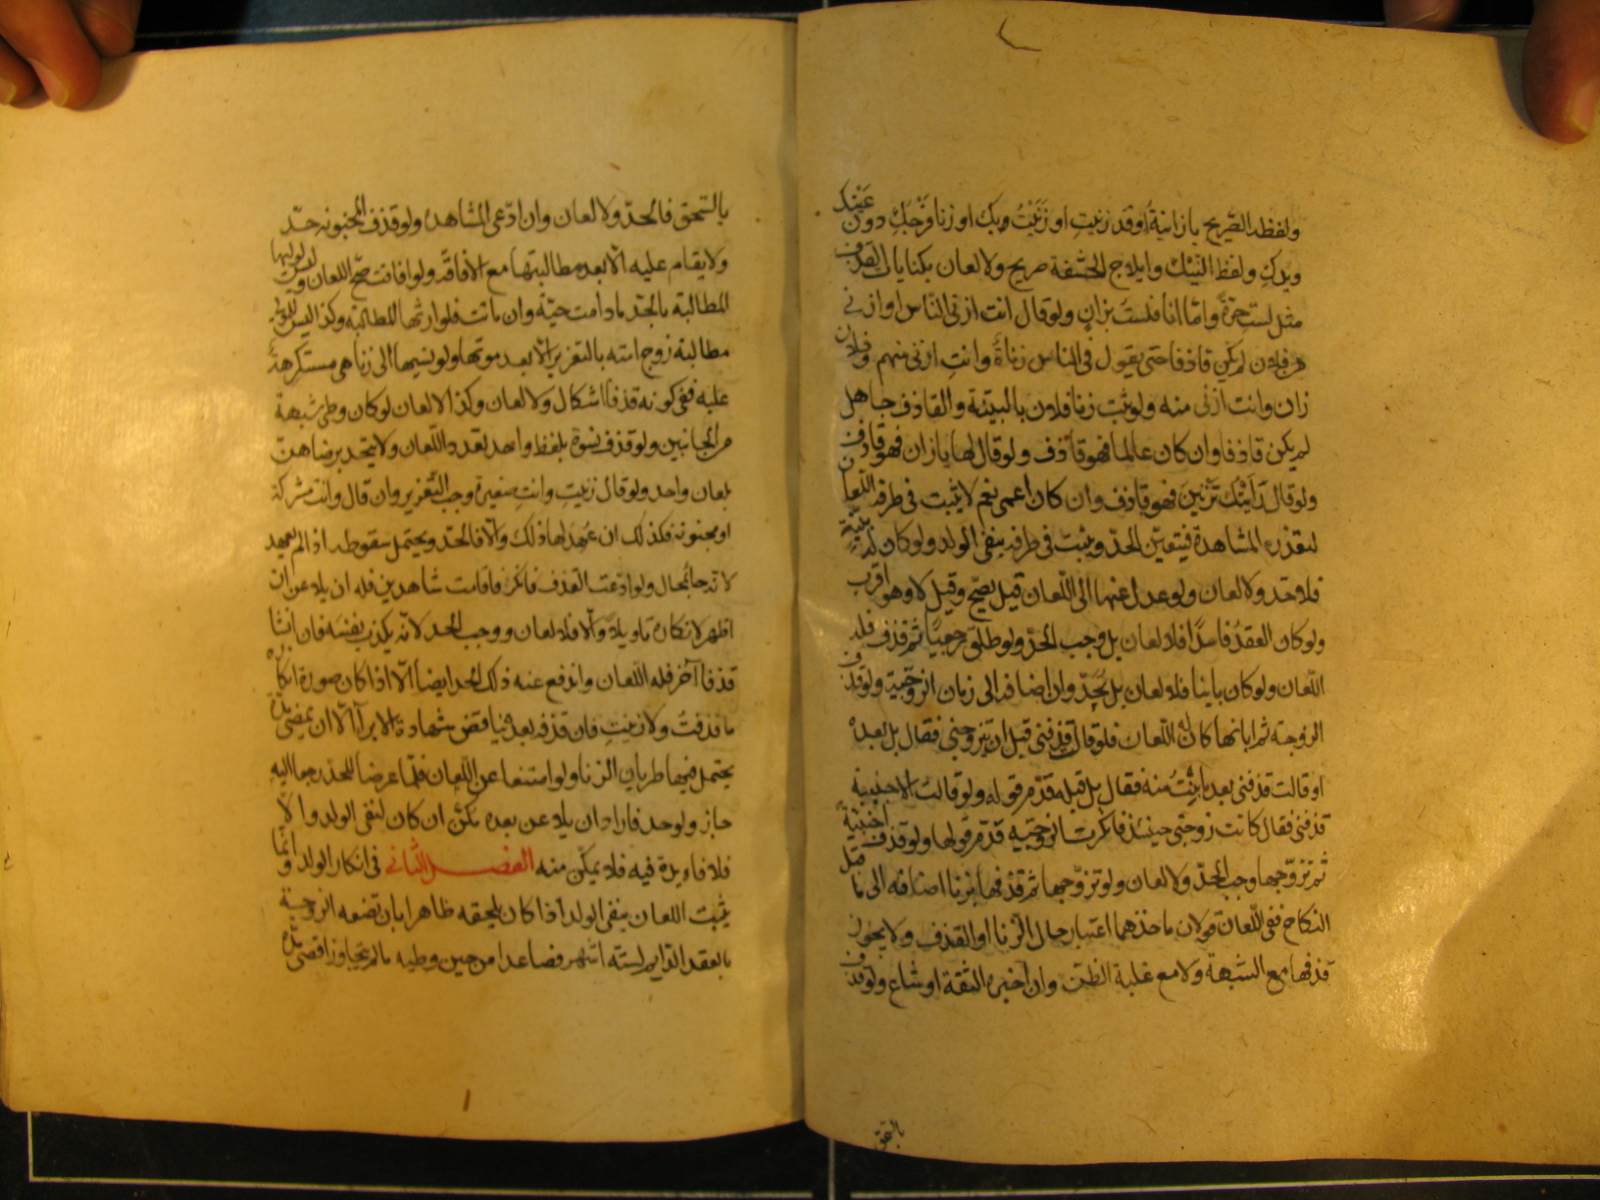 ولفظه الصّريح يا زانية او قد زنيتِ او زَنَيْتُ وبك او زنا فَرْجكِ دون عَيْنِك
ويدكِ ولفظ النَّيْك وايلاج الحشفة صريح ولا لعان بكنايات القذف
مثل لستِ حرّة وامّا انا فلستُ بزانٍ ولو قال انت ازنى النّاس او ازنى
من فلان لم يكن قاذفا حتى يقول فى الناس زناةٌ وانتِ ازنى منهم وفلان
زان وانت ازنى منه ولو ثبت زنا فلان بالبيّنة والقاذف جاهل
لم يكن قاذفا وان كان عالما فهو قاذف ولو قال لها يا زان فهو قاذف
ولو قال رَايتُك تَزْنينَ فهو قاذف وان كان اعمى نعم لا يثبت فى طرفه اللعان
لتعذره المشاهدة فيتعيّن الحدّ ويثبت فى طرفه بنفى الولد ولو كان له بيّنة
فلا حدّ ولا لعان ولو عدل عنها الى اللّعان قيل يصّح وقيل لا وهو اقرب
ولو كان العقدُ فاسدًا فلا لعان بل وجب الحدّ ولو طلّق رجعيًّا ثم قذف فله
اللّعان ولو كان بائنا فلا لعان بل يُحَدّ وان اضافه الى زمان الزوجيّة ولو قذف
الزوجة ثم ابانها كان له اللّعان فلو قالت قذفنى قبل ان يتزوجنى فقال بل بعده
او قالت قذفنى بعد ما بِنْتُ منه فقال بل قبله قدّم قوله ولو قالت الاجنبية
قذفنى فقال كانت زوجتى حينئذ فانكرت الزوجيّه قدّم قولها ولو قذف اجنبيّة
ثم تزوّجها وجب الحدّ ولا لعان ولو تزوّجها ثم قذفها بزنا اضافه الى ما قبل
النكاح ففى اللّعان قولان ماخذهما اعتبار حال الزنا او القذف ولا يجوز
قذفها مع الشبهة ولا مع غلبة الظنّ وان اخبره الثقة او شاع ولو قذف
بالسّحق
بالسّحق فالحدّ ولا لعان وان ادّعى المشاهده ولو قذف المجنونه حدّ
ولا يقام عليه الّا بعد مطالبتها مع الافاقه ولو افاقت صحّ اللعان وليس لوليها
المطالبة بالحدّ ما دامت حيّة وان ماتت فلوارثها المطالبة وكذا ليس للمولى
مطالبة زوج امته بالتعزير الّا بعد موتها ولو نسبها الى زنا هى مستكرهةٌ
عليه ففى كونه قذفا اشكال ولا لعان وكذا لا لعان لو كان وطى شبهة
من الجانبين ولو قذف نسوة بلفظ واحد تعدد اللّعان ولا يتحد برضاهنّ
بلعان واحد ولو قال زنيتِ وانتِ صغيرة وجب التّعزير وان قال وانت مشركة
او مجنونة فكذلك ان عُهد لها ذلك والّا فالحدّ ويحتمل سقوطه اذا لم يعهد
لانّه جا بمُحال ولو ادّعت القذف فانكر فاقامت شاهدين فله ان يلاعن ان
اظهر لانكاره تاويلا والّا فلا لعان ووجب الحد لانّه يكذّب نفسَه فان انشا
قذفا آخر فله اللّعان واندفع عنه ذلك الحد ايضا الّا اذا كان صورة انكاره
ما قذفتُ ولا زنيتِ فان قذفه بعده يناقض شهادة الابرآ الّا ان تمضى مدّة
يحتمل فيها طريان الزنا ولو امتنعا عن اللّعان فلمّا عرضا للحدّ رجعا اليه
جاز ولو حد فاراد ان يلاعن بعده مكّن ان كان لنفى الولد والّا
فلا فايدة فيه فلا يمكّن منه الفصل الثانى فى انكار الولد وانّما
يثبت اللعان بنفى الولد اذا كان يلحقه ظاهرا بان تضعه الزوجة
بالعقد الدّايم لستّه اشهر فصاعدا من حين وطيه ما لم يتجاوز اقصى مدّة